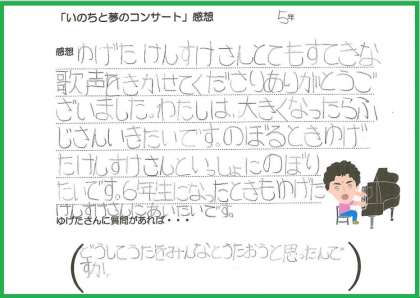 「いのちと夢のコンサート」感想 5年
感想 ゆげた けんすけさんとてもすてきな
歌声をきかせてくださりありがとうご
ざいました。わたしは、大きくなったらふ
じさんいきたいです。のぼるときゆげ
たけんすけさんといっしょにのぼり
たいです。6年生になったときもゆげた
けんすけさんにあいたいです。
ゆげたさんに質問があれば・・・
どうしてうたをみんなとうたおうと思ったんで
すか。